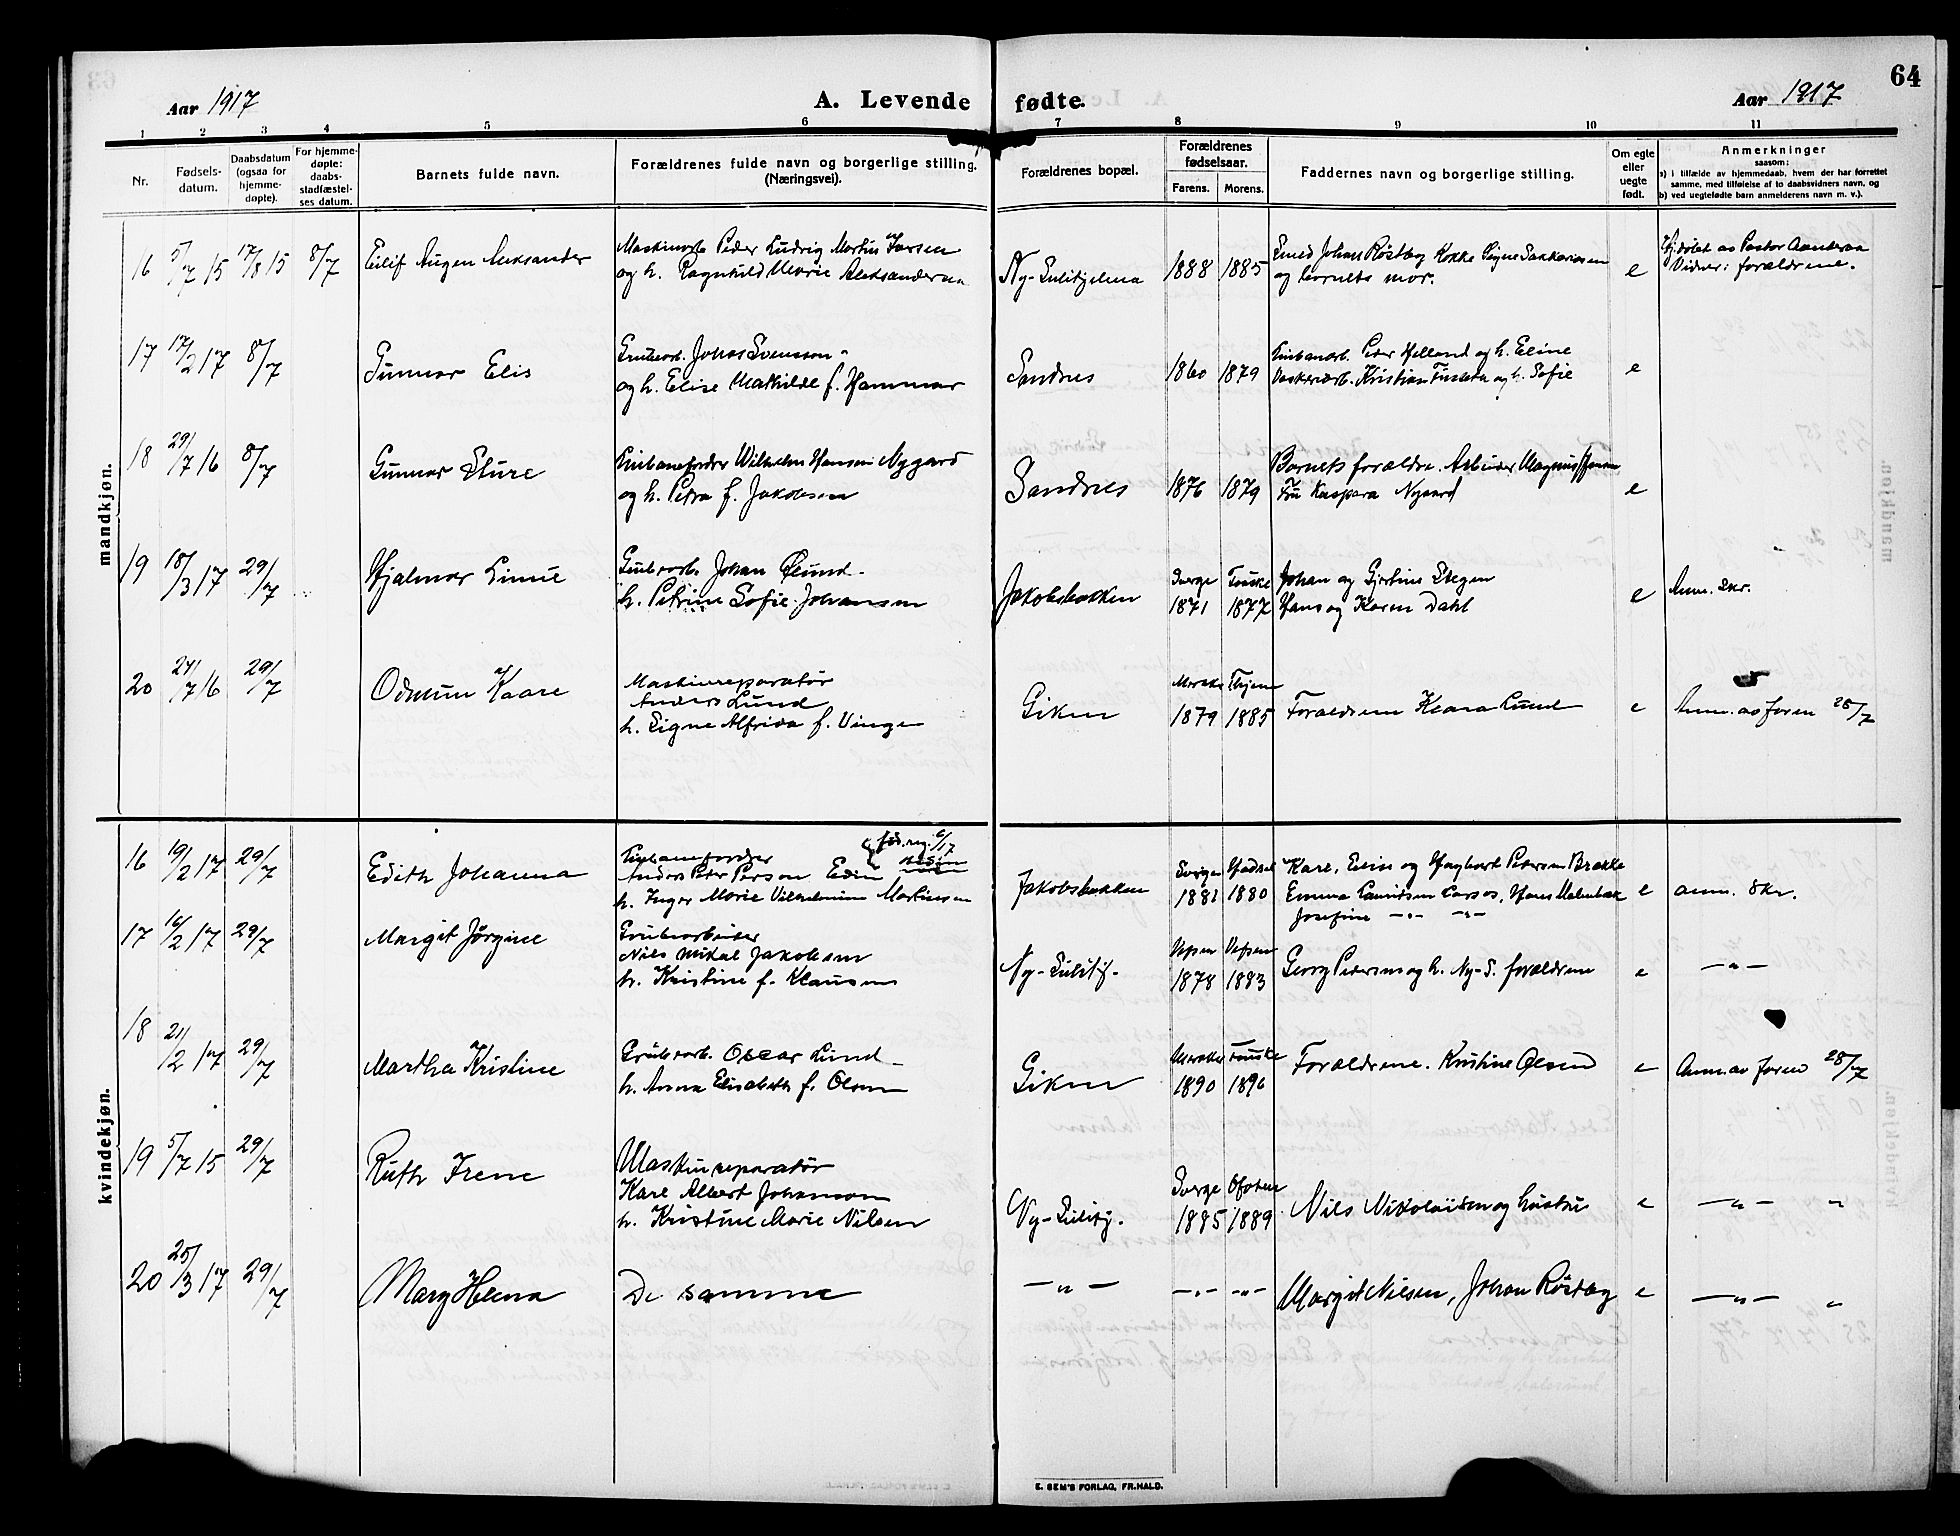 64
Aar 1917
A. Levende fødte.
Aar 1917
1 2 3 4 5 6 7 8 9 10 11
Nr.
Fødsels-
datum.
Daabsdatum
(ogsaa for
hjemme-
døpte).
For hjemme-
døpte:
daabs-
stadfæstel-
ses datum.
Barnets fulde navn.
Forældrenes fulde navn og borgerlige stilling.
(Næringsvei).
Forældrenes bopæl.
Forældrenes
fødselsaar.
Farens. Morens.
Faddernes navn og borgerlige stilling.
Om egte
eller
uegte
født.
Anmerkninger
saasom:
a) i tilfælde av hjemmedaab, hvem der har forrettet
samme, med tilføielse af to daabsvidners navn, og
b) ved uegtefødte barn anmelderens navn m. v.).
mandkjøn.
16 5/7 15 17/8 15 8/7 Eilif Augen Aleksander
Peder Ludvig Martin Larsen
og h. Ragnhild Marie Aleksandersen
Ny-Sulitjelma 1888 1885
Smed Johan Røstby Kokke Signe Sakkariassen
og barnets mor.
e
Hj.døbt av Pastor Aanderaa
Vidner: forældrene.
17 17/2 17 8/7 Gunnar Elis
Grubearb. Johas Svensson
og h. Elise Mathilde f. Hammar
Sandnes 1860 1879
Peder Helland og h. Eline
Kristian og h. Sofie
e
18 29/7 16 8/7 Gunnar Sture
Wilhelm Hansen Nygard
og h. Petra f. Jakobsen
Sandnes 1876 1879
Barnets forældre. Arbeider Magnus
Fru Kaspara Nygaard
e
19 18/3 17 29/7 Hjalmar Linue
Grubearb. Johan Ølund
h. Petrine Sofie Johansen
Jakobsbakken
Sverge Fauske
1871 1877
Johan og Gjertine Stegen
Hans og Karen Dahl
e
Anm. Skr.
20 24/7 16 29/7 Odmun Kaare
Maskinreparatør
Anders Lund
h. Signe Alfrida f. Vinge
Giken
1879 1885
Forældrene Klara Lund
e
Anm. av faren 28/7
kvindekjøn.
16 19/2 17 29/7 Edith Johanna
Anders Peter Person Edin
h. Inger Marie Vilhelmine Martinsen
Jakobsbakken
Sverge
1881 1880
Karl, Elise og Hagbart Petersen Brække
Emma Lauritsen Hans
Josefine -"- -"-
e
anm. Skr.
17 16/2 17 29/7 Margit Jørgine
Grubearbeider
Nils Mikal Jakobsen
h. Kristine f. Klausen
Ny-Sulitj.
Vefsen Vefsen
1878 1883
Georg Pedersen og h. Ny-S. forældrene
e
-"-
18 21/2 17 29/7 Martha Kristine
Grubearb. Oscar Lund
h. Anna Elisabeth f. Olsen
Giken
Fauske
1890 1896
Forældrene. Kristine Olsen
e
Anm. av faren 28/7
19 5/7 15 29/7 Ruth Irene
Maskinreparatør
Karl Albert Johanson
h. Kristine Marie Nilsen
Ny-Sulitj.
Sverge Ofoten
1885 1889
Nils Nikolaisen og hustru
e
-"- "
20 25/3 17 29/7 Mary Helena
De samme
-"- -"- -"-
Margit Nilsen, Johan Røstby
e
-"- "
E. SEM'S FORLAG, FR.HALD.